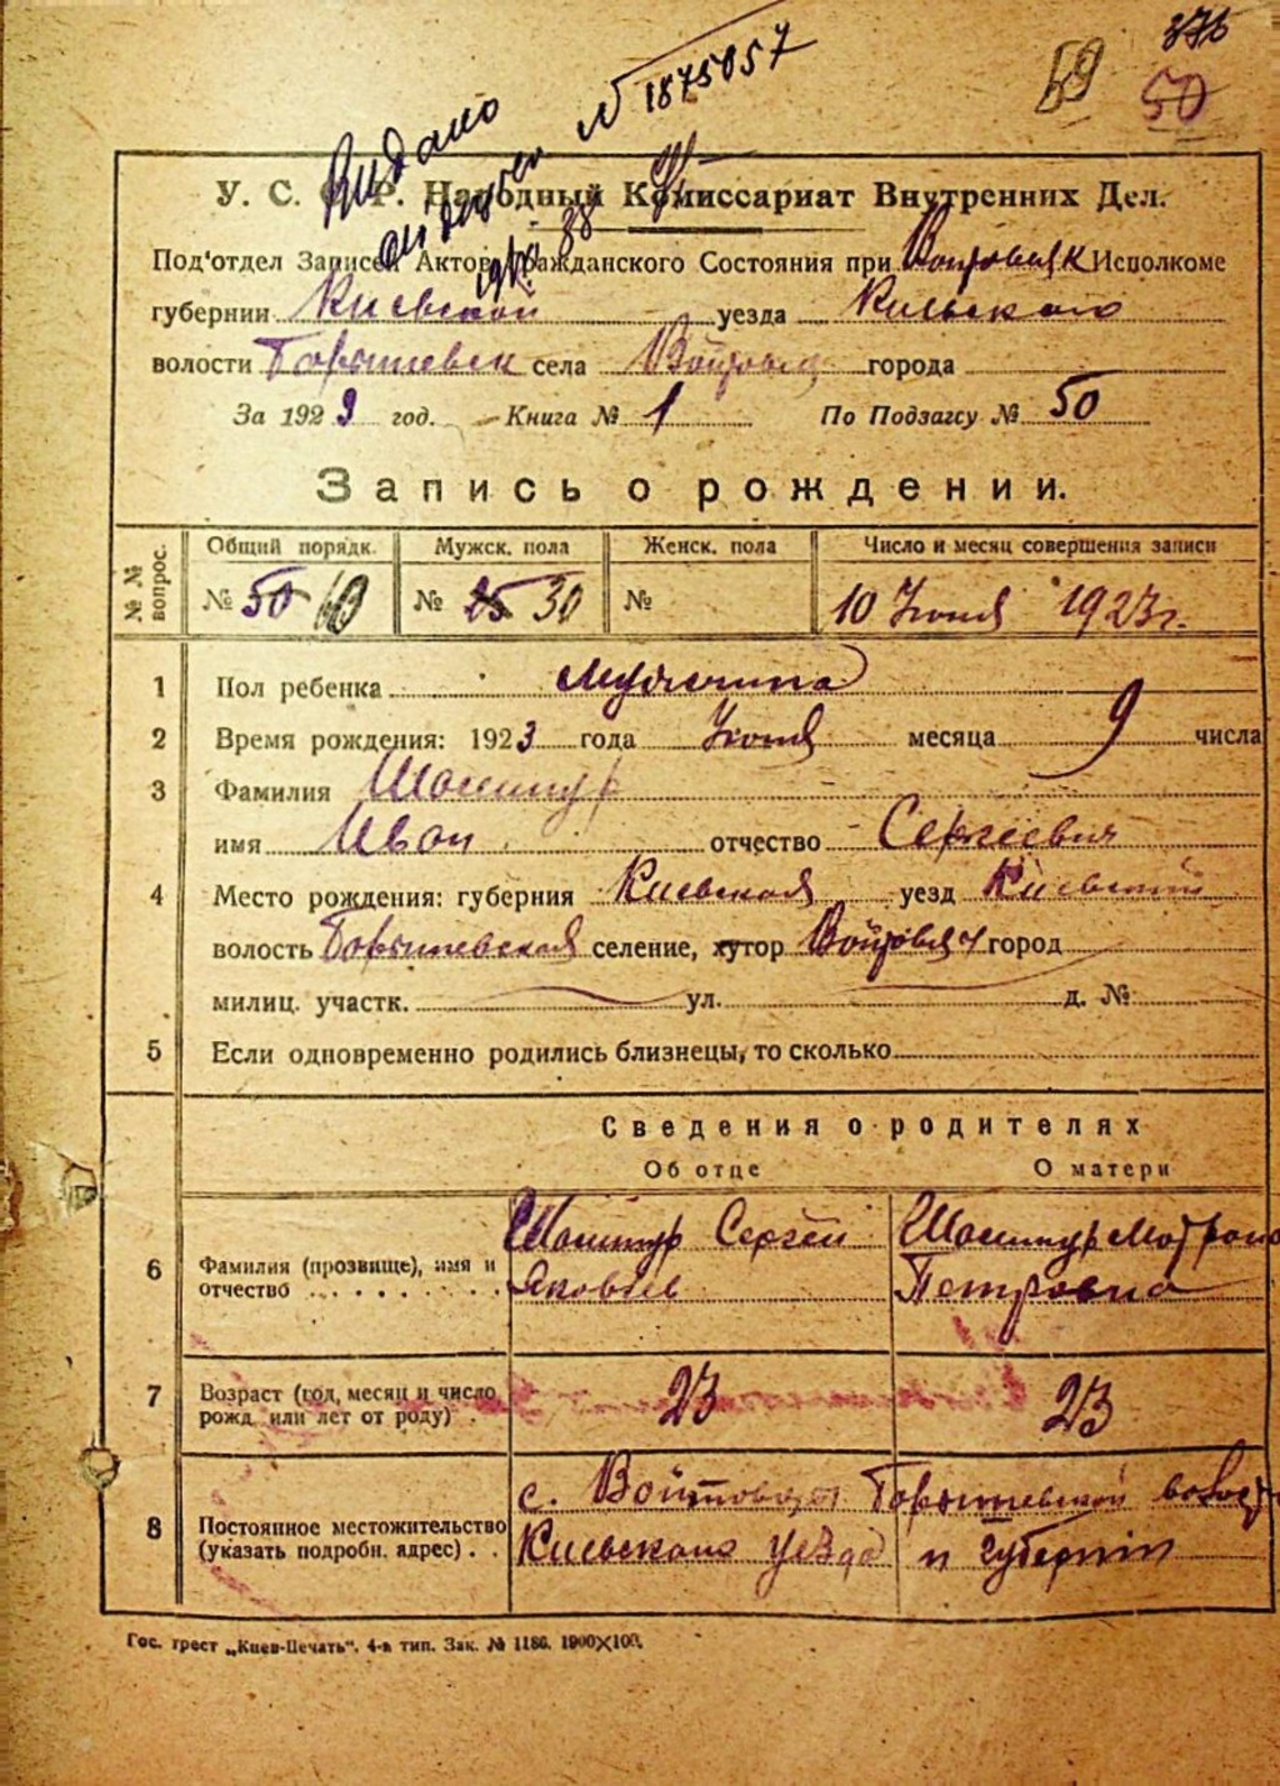 376
59 50
Видано
№ 1875057
38
У. С. С. Р. Народный Комиссариат Внутренних Дел.
Под'отдел Записей Актов Гражданского Состояния при Исполкоме
губернии Киевской уезда Киевского
волости села города
За 1923 год. Книга № 1 По Подзагсу № 50
Запись о рождении.
№ № вопрос. Общий порядк. Мужск. пола Женск. пола Число и месяц совершения записи
№ 50 № 25 30 № 10 Июня 1923 г.
1 Пол ребенка мужчина
2 Время рождения: 1923 года Июня месяца 9 числа
3 Фамилия
имя Иван отчество Сергеевич
4 Место рождения: губерния Киевская уезд Киевский
волость селение, хутор город
милиц. участк. ул. д. №
5 Если одновременно родились близнецы, то сколько
Сведения о родителях
Об отце О матери
6 Фамилия (прозвище), имя и отчество Сергей Мотрона
Яковлев Петровна
7 Возраст (год, месяц и число рожд. или лет от роду) 23 23
8 Постоянное местожительство (указать подробн. адрес) с. волости
Киевского уезда и губернии
Гос. трест „Киев-Печать". 4-я тип. Зак. № 1186. 1900×100.